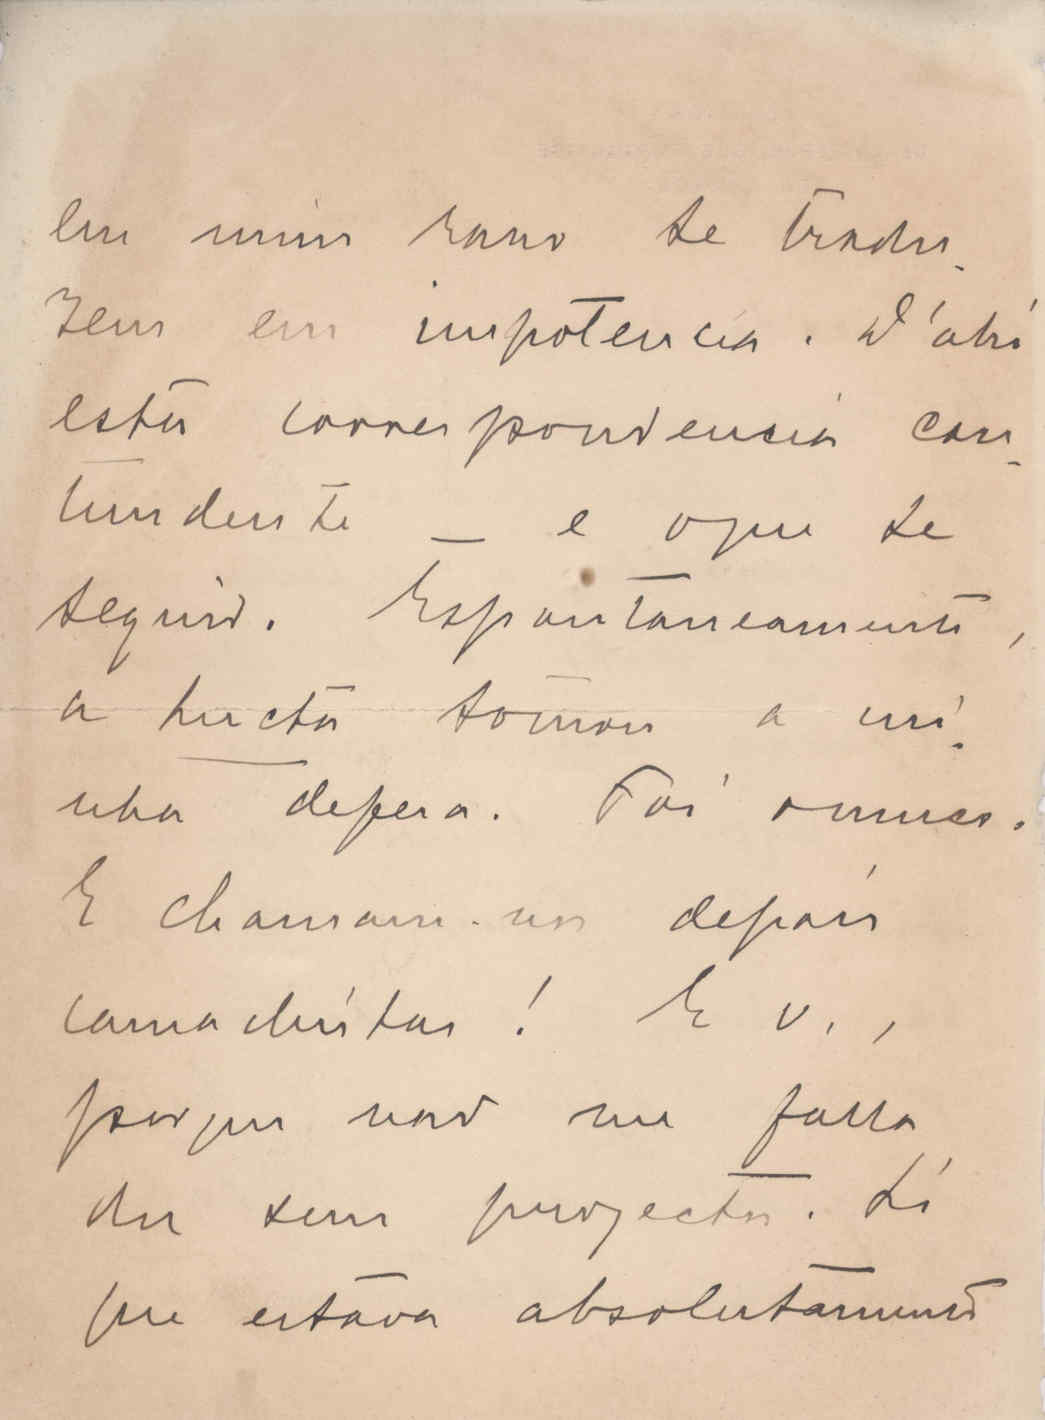 em mim raro se tradu-
zem em impotencia. D'ahi
esta correspondencia con-
tundente — e o que se
seguio. Espontaneamente,
a lucta tomou a mi-
nha defesa. Foi
E chamam-nos depois
camachistas! E v.,
porque não me falla
do seu projecto. Li
que estava absolutamente